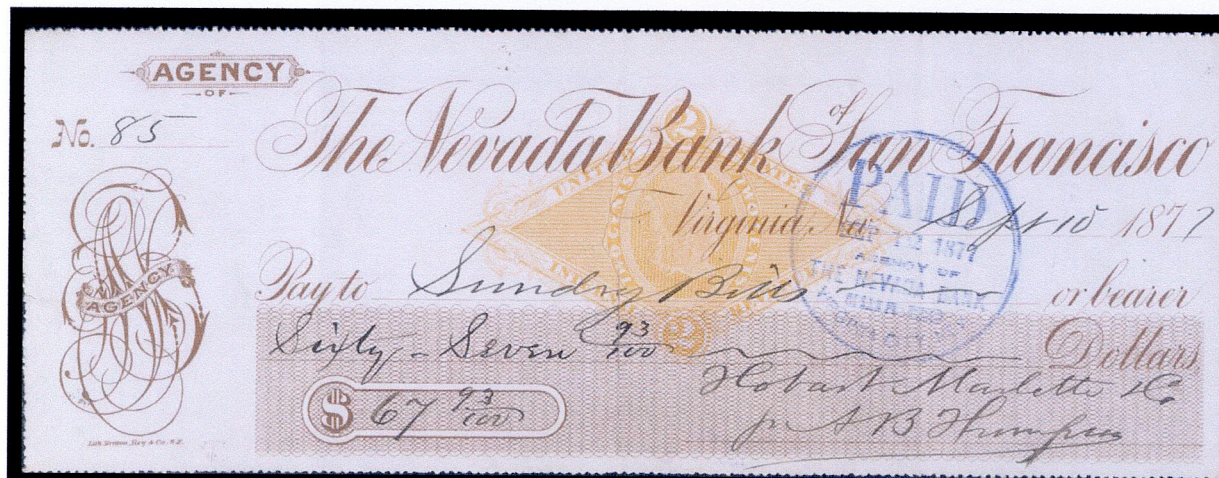 AGENCY
OF
No. 85
The Nevada Bank of San Francisco
Virginia, Sept 10 1877
UNITED STATES
2
PAID
SEP 12 1877
AGENCY OF
THE NEVADA BANK
Pay to Sundry Bills or bearer
Sixty-Seven 93/100 Dollars
$ 67 93/100
Hobart Marlette & Co
2
AGENCY